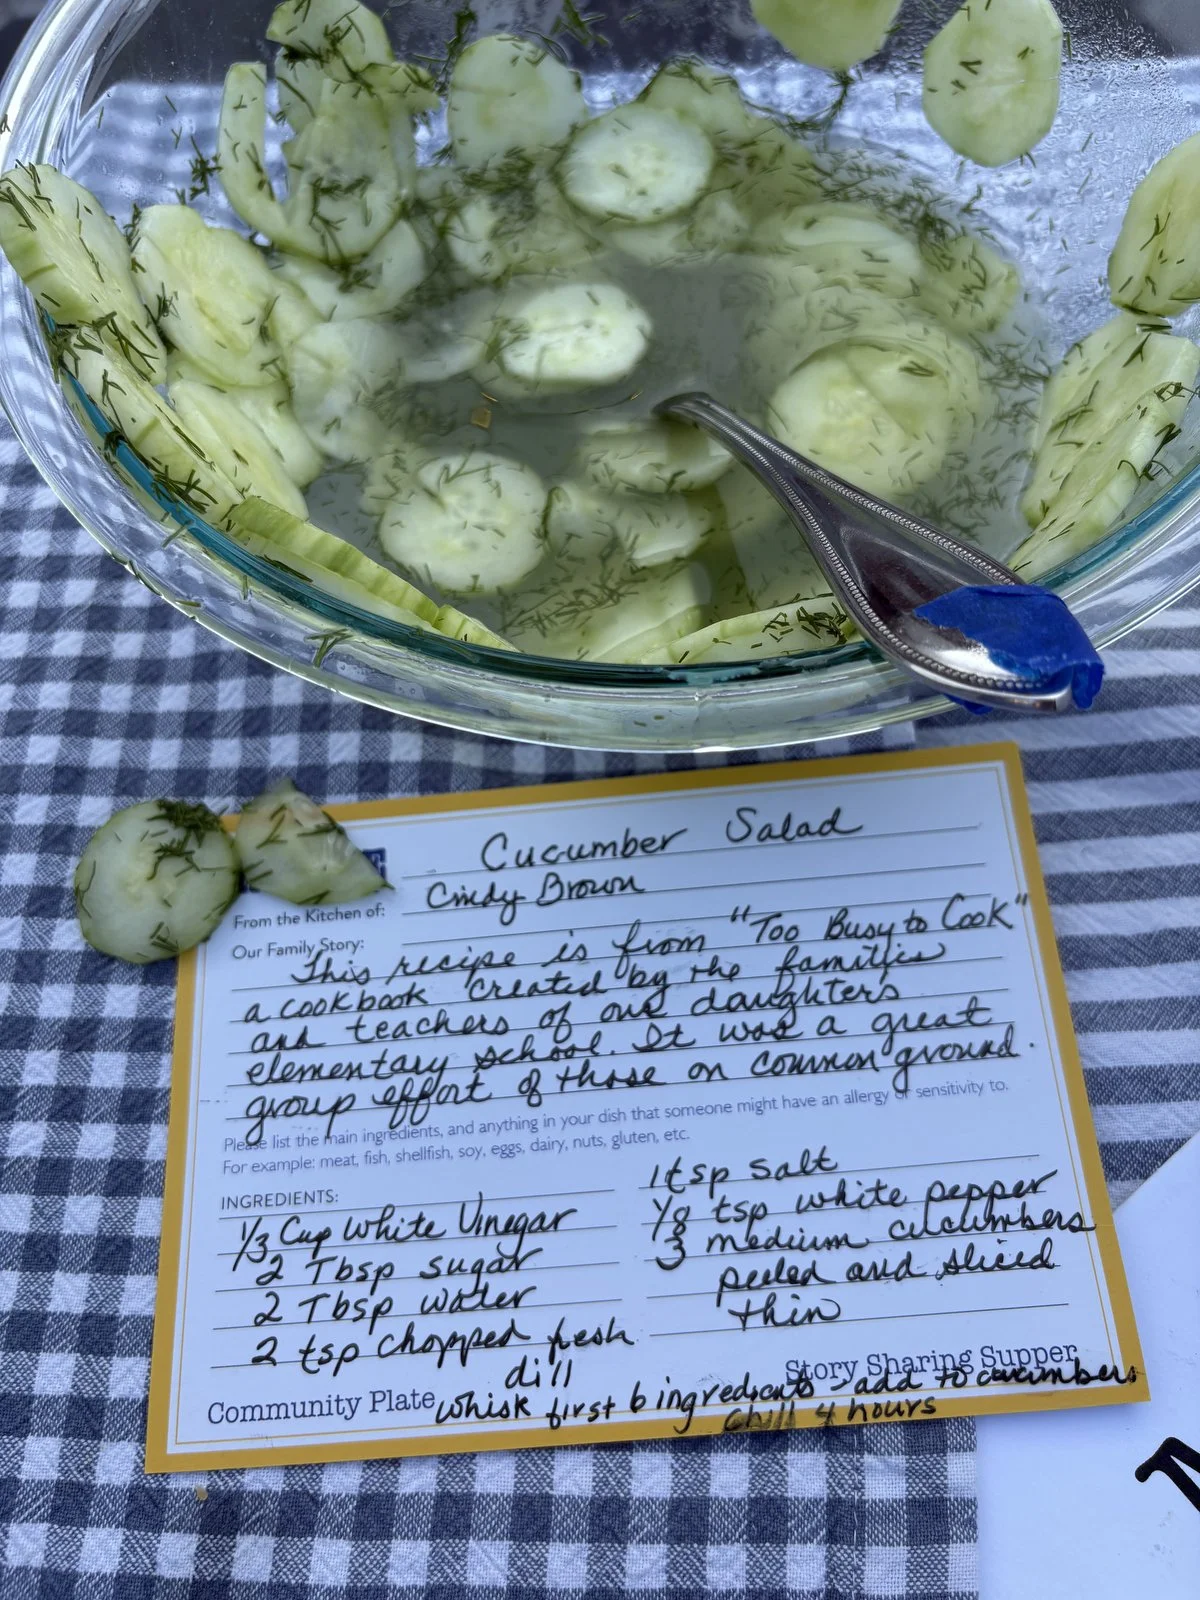 Cucumber Salad
From the Kitchen of: Cindy Brown
Our Family Story:
This recipe is from "Too Busy to Cook"
a cookbook created by the families
and teachers of our daughters
elementary school. It was a great
group effort of those on common ground.
Please list the main ingredients, and anything in your dish that someone might have an allergy or sensitivity to.
For example: meat, fish, shellfish, soy, eggs, dairy, nuts, gluten, etc.
INGREDIENTS:
1/3 Cup White Vinegar
2 Tbsp sugar
2 Tbsp water
2 tsp chopped fresh
dill
1 tsp salt
1/8 tsp white pepper
3 medium cucumbers
peeled and sliced
thin
Community Plate
Story Sharing Supper
Whisk first 6 ingredients - add to cucumbers
Chill 4 hours